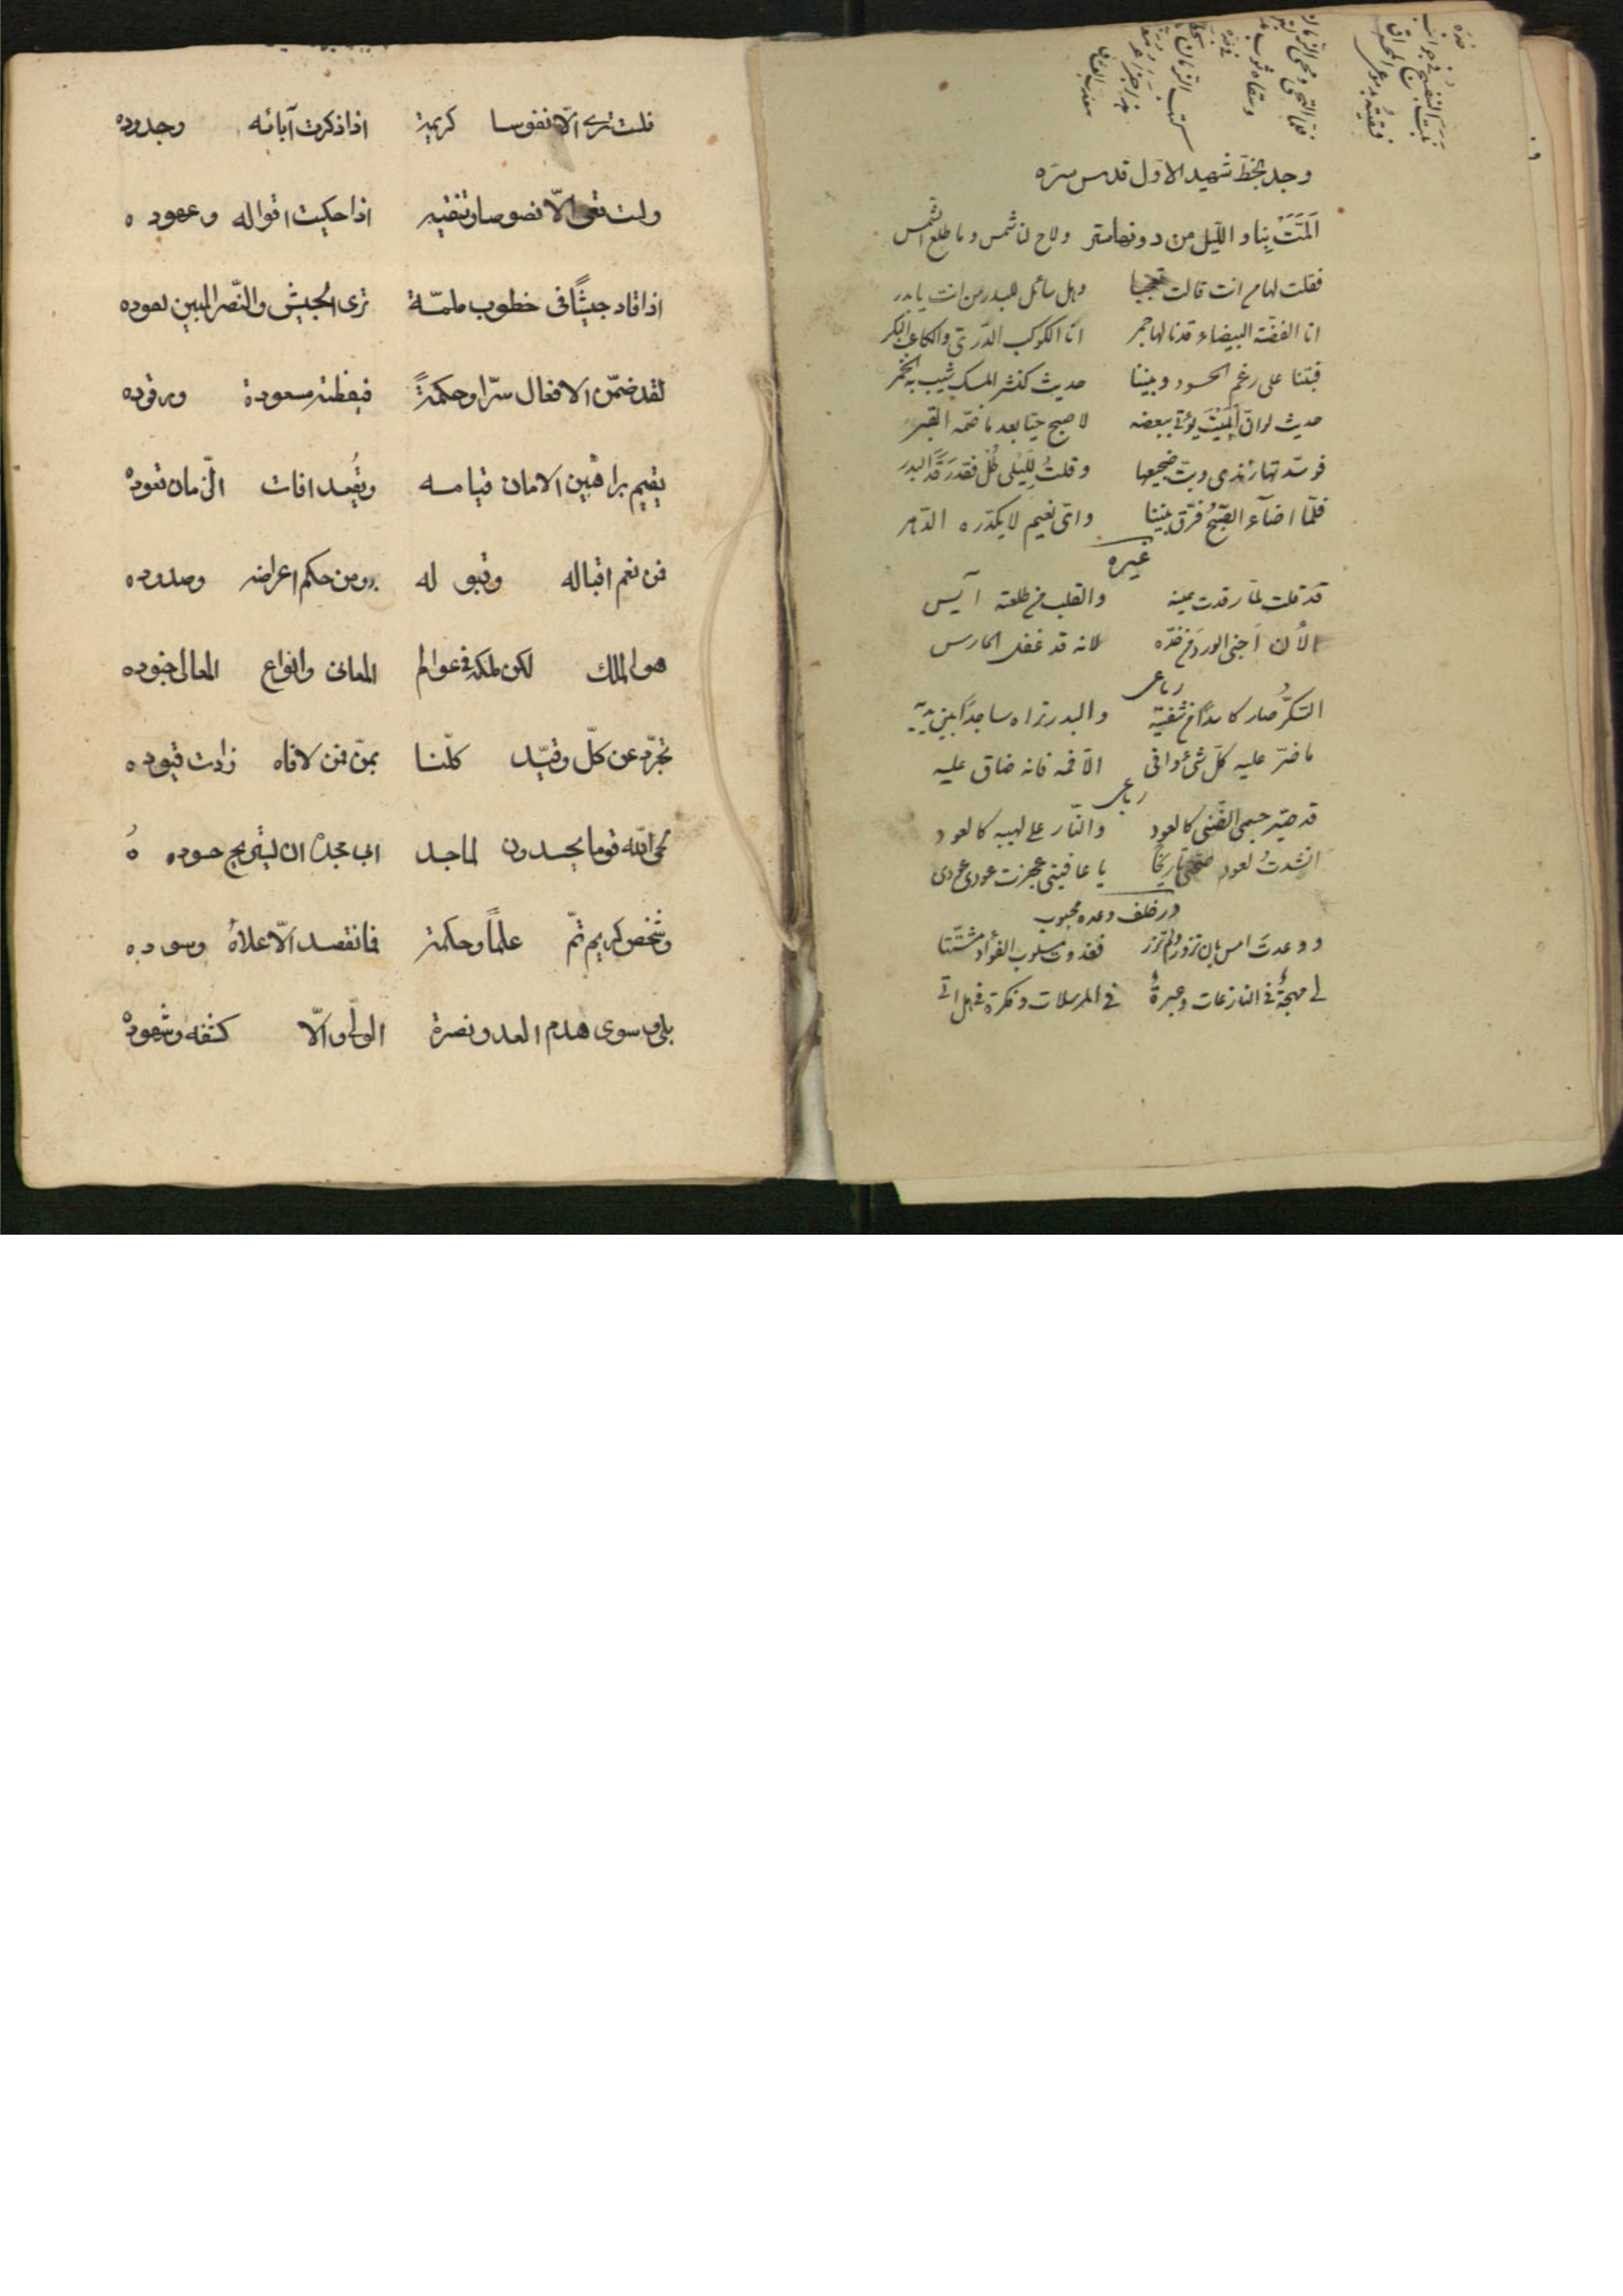 وجد بخطّ شهيد الاوّل قدس سره
اَلمَّتْ بنا و الليل من دونها ستر ولاح لنا شمس وما طلع الشمس
فقلت لها من انت قالت تعجبا وهل سائل للبدر من انت يا بدر
انا الفضّة البيضاء قدنالها حجر انا الكوكب الدّرّى والكاعب البكر
فبتنا على رغم الحسود وبيننا حديث كنشر المسك شيب به الخمر
حديث لو انّ الميّت يؤتى ببعضه لاصبح حيّا بعد ما ضمّه القبر
فوسّدتها زندى وبتّ ضجيعها وقلتُ لِلَيلى طُلْ فقد رَقَدَ البدر
فلمّا اضآء الصّبحُ فرّق بيننا واىّ نعيم لا يكدّره الدّهر
غيره
قد قلت لمّا رقدت عينه والقلب من طلعته آيس
الأن اَجنى الورد من خدّه لانه قد غفل الحارس
رباعى
السّكّر صار كاسدًا من شفتيه والبدر تراه ساجدًا بين يديه
ما ضرّ عليه كلّ شئ وافى الّا فمه فانه ضاق عليه
رباعى
قد صيّر جسمى الضّنى كالعود والنّار على لهيبه كالعود
انشدتُ لعود يا عافيتى عجزت عودى عودى
در خلف وعده محبوب
ووعدتَ امس بان تزور ولم تزر فغدوت مسلوب الفؤاد مشتّتا
لى مهجةٌ فى النازعات وعبرةٌ فى المرسلات وفكرة فى هل اتى
فلست ترى الّا نفوسا كريمة اذا ذكرت آبائه وجدوده
ولست تعى الّا نصوصا اذا حكيت اقواله وعهوده
اذا قاد جيشًا فى خطوب ملمّة ترى الجيش والنّصر المبين لعوده
لقد ضمّن الافعال سرّا وحكمةً فيقظته مسعودة ورقوده
يقيم براهين الامان قيامه ويُقعِد افات الزّمان قعوده
فمن نعم اقباله وقبوله ومن حكم اعراضه وصدوده
هو الملك لكن ملكه فى عوالم المعانى وانواع المعالى جنوده
تجرّد عن كلّ وقيّد كلّنا بمنّ فمن لاقاه زادت قيوده
لحى اللّه قوما يحسدون لماجد ابى مجدُه ان يستريح حسوده
وشخص كريم تمّ علمًا وحكمة فما نقصد الّا علاهُ وسوده
سوى هدم العدو ونصرة الولّى والّا كشفه وشهوده